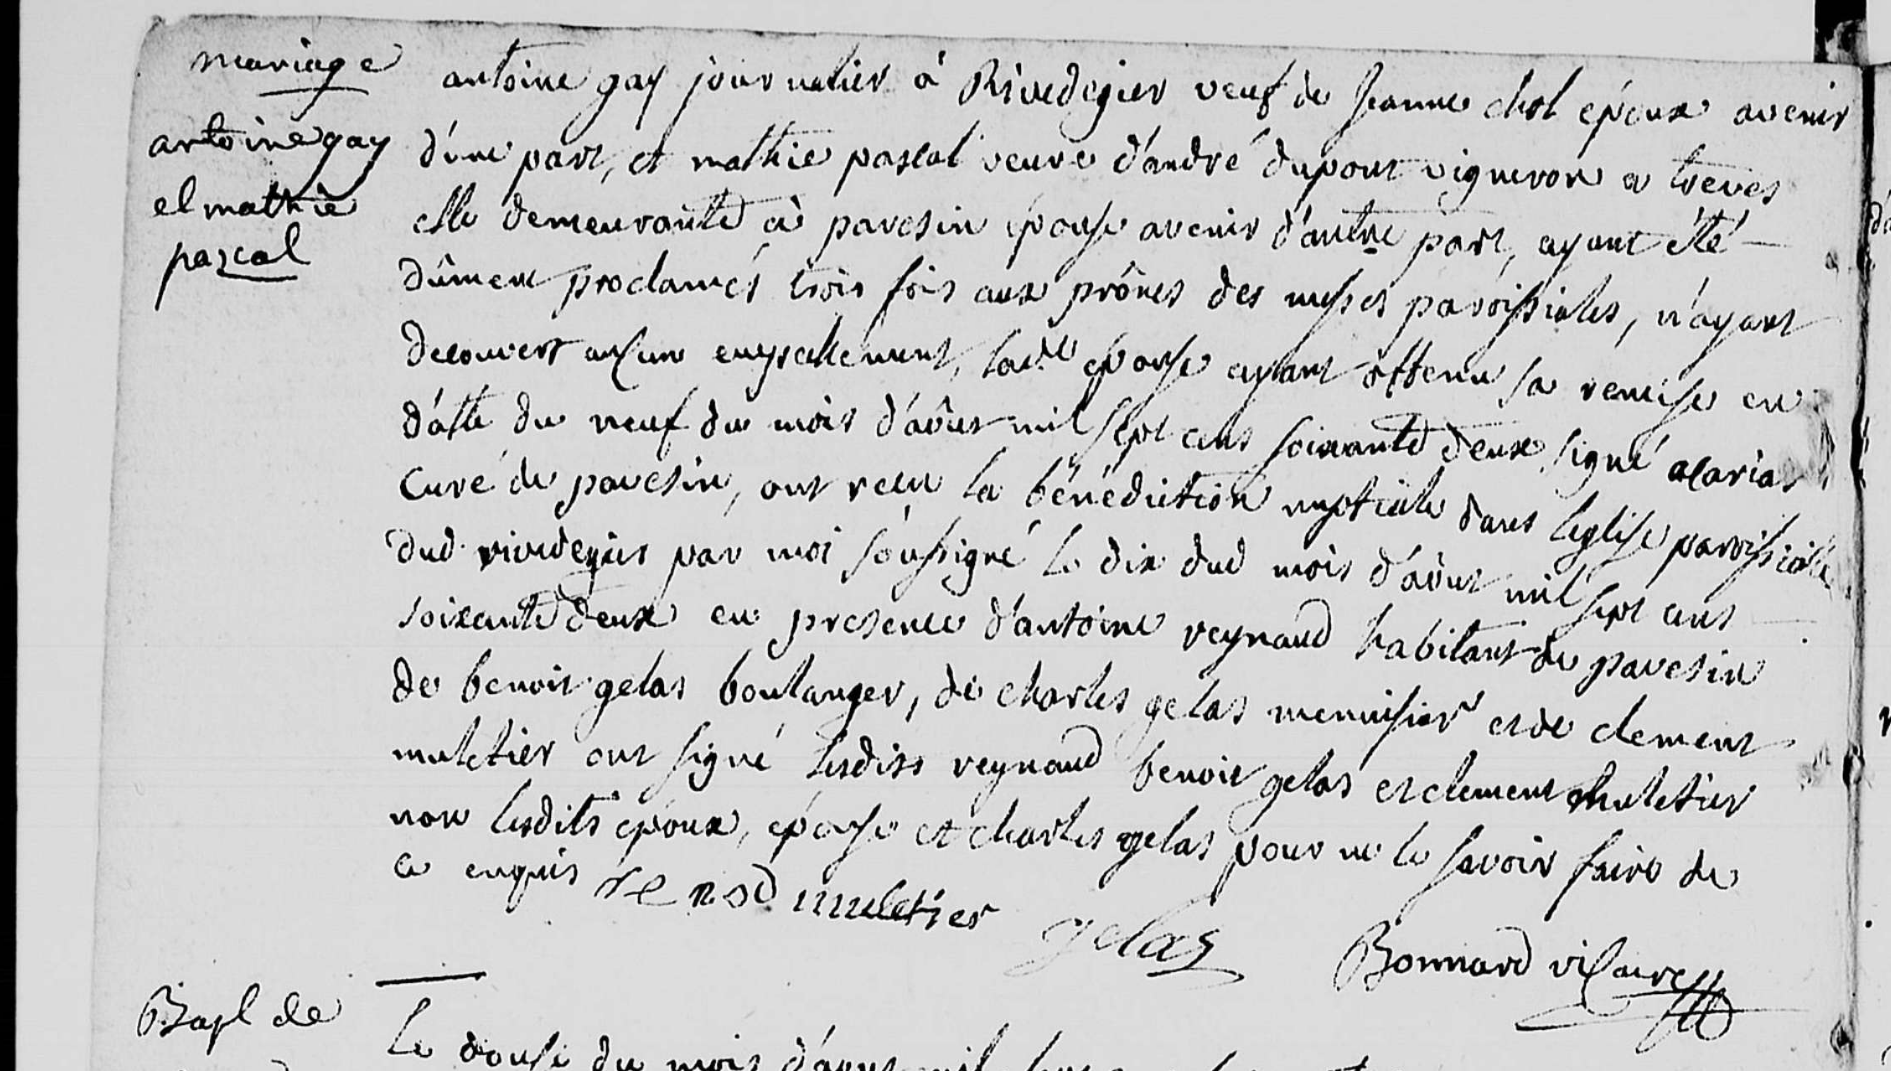 mariage
antoine gay
et mathie
pascal
antoine gay journalier à Rivedegier veuf de Jeanne chol époux avenir
d'une part, et mathie pascal veuve d'andré dupont vigneron a trèves
elle demeurante à pavesin épouse avenir d'autre part, ayant été
dûment proclamés trois fois aux prônes des messes paroissiales, n'ayant
decouvert aucun empechement, lad.te épouse ayant obtenu sa remise en
datte du neuf du mois d'août mil sept cens soixante deux signé acarias
Curé de pavesin, ont recu la bénédiction nuptiale dans leglise paroissiale
dud. rivedegier par moi soussigné le dix dud mois d'août mil sept cens
soixante deux en presence d'antoine reynaud habitant de pavesin
de benoit gelas boulanger, de charles gelas menuisier et de clement
muletier ont signé lesdits reynaud benoit gelas et clement muletier
non lesdits époux, épouse et charles gelas pour ne le savoir faire de
ce enquis renod muletier gelas Bonnard vicaire
Bapt de
Le douse du mois d'aout mil